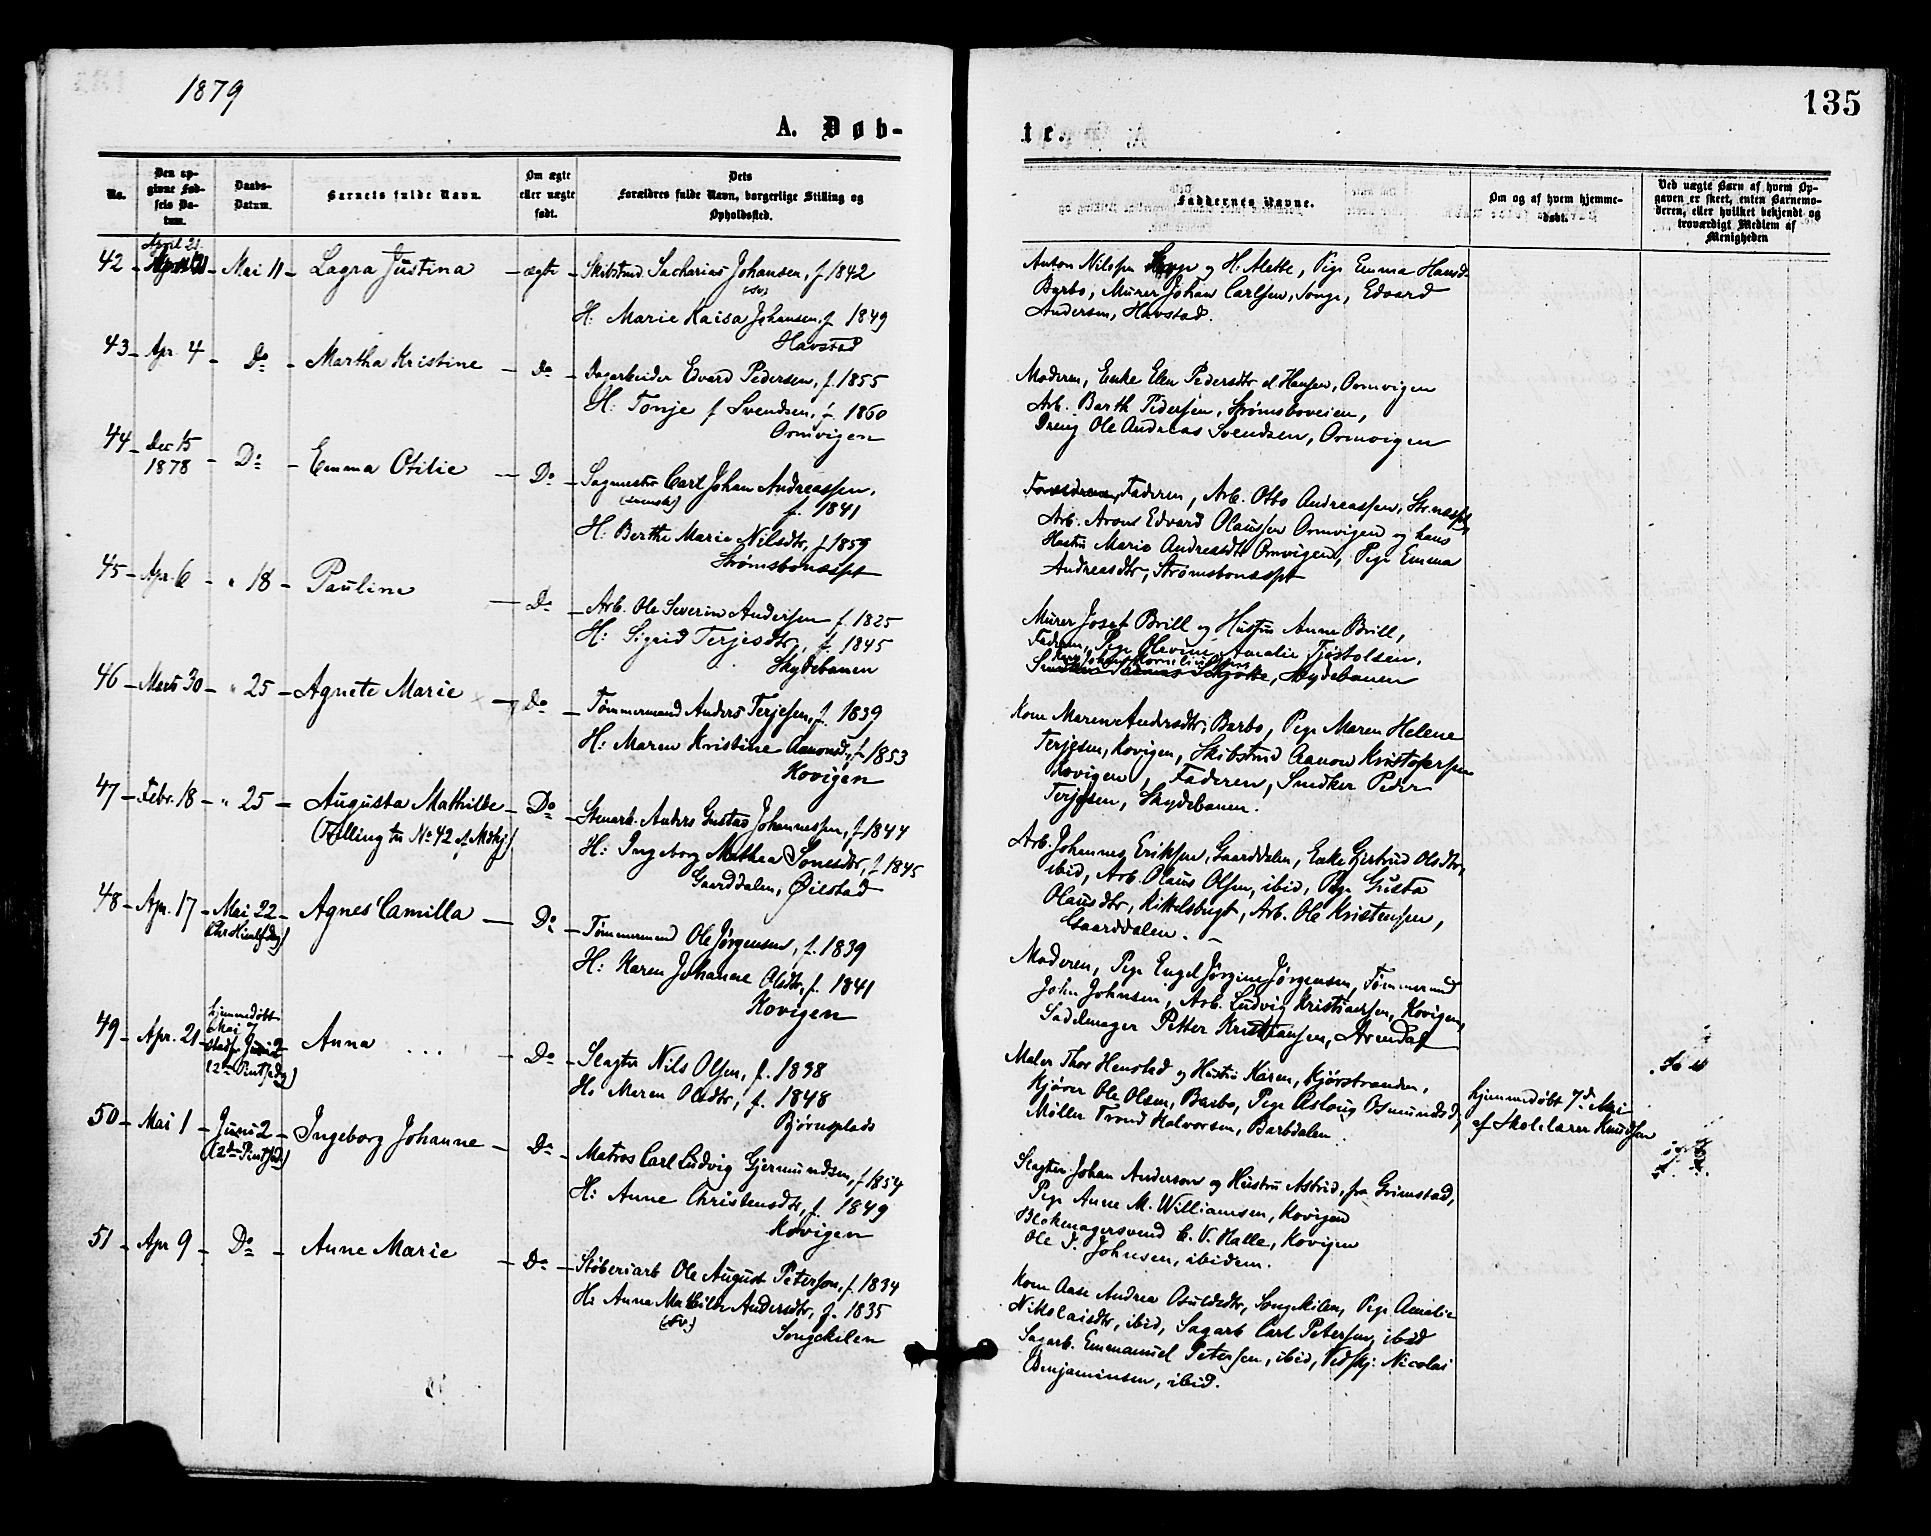 1879
135
A. Døb-
te.
No.
Den op-
givne Fød-
sels Da-
tum.
Daabs-
Datum.
Barnets fulde Navn.
Om ægte
eller uægte
født.
Dets
Forældres fulde Navn, borgerlige Stilling og
Opholdssted.
Faddernes Navne.
Om og af hvem hjemme-
døbt.
Ved uægte Børn af hvem Op-
gaven er skeet, enten Barnemo-
deren, eller hvilket bekjendt og
troværdigt Medlem af
Menigheden
42 April 21 Mai 11 Lagra Justina ægte Skibstmd Sacharias Johansen, f 1842
(sv)
H: Marie Kaisa Johansen, f 1849
Havstad
Anton Nilssen og H. Mette, Pige Emma Hansd.
Barbo, Murer Johan Carlsen, Songe, Edvard
Andersen, Havstad.
43 Apr. 4 Do Martha Kristine Do Dagarbeider Edvard Pedersen, f. 1855
H: Tonje f Svendsen, f. 1860
Ormvigen
Moderen, Enke Elen Pedersdtr el Hansen, Ormvigen
Arb. Barth Pedersen, Strømsboveien,
Dreng Ole Andreas Svendsen, Ormvigen
44 Dec 15
1878 Do Emma Otilie Do Sagmester Carl Johan Andreassen,
(svensk) f. 1841
H: Berthe Marie Nilsdtr, f 1859
Strømsbonæsset
Faderen, Arb. Otto Andreassen, Str.næsset,
Arb. Arons Edvard Olaussen Ormvigen og hans
Hustru Marie Andreasdtr Ormvigen, Pige Emma
Andreasdtr, Strømsbonæsset
45 Apr. 6 " 18 Pauline Do Arb. Ole Severin Andersen f. 1825
H: Sigrid Terjesdtr, f. 1845
Skydebanen
Murer Josef Brill og Hustru Anne Brill,
Faderen, Pige Olevine Amalie Tjøstolsen,
Skydebanen
46 Marts 30 " 25 Agnete Marie Do Tømmermand Anders Terjesen, f. 1839
H: Maren Kristine Aanonsd., f 1853
Kovigen
Kone Maren Andersdtr, Barbo, Pige Maren Helene
Terjesen, Kovigen, Skibstmd Aanon Kristofersen
Kovigen, Faderen, Snedker Peder
Terjesen, Skydebanen.
47 Febr. 18 " 25 Augusta Mathilde Do Stenarb. Anders Gustav Johannessen, f 1844
(Tvilling til No 42 af Mdkj)
H: Ingeborg Mathea Jonesdtr, f 1845
Gaarddalen, Øiestad
Arb. Johannes Eriksen, Gaarddalen, Enke Gjertrud Olsdtr,
ibid, Arb. Olaus Olsen, ibid, Pige Gusta
Olausdtr, Kittelsbugt, Arb. Ole Kristensen,
Gaarddalen.
48 Apr. 17 Mai 22 Agnes Camilla Do Tømmermand Ole Jørgensen, f. 1839
(Chr Himlfdag)
H: Karen Johanne Olsdtr, f. 1841
Kovigen
Moderen, Pige Engel Jørgine Jørgensen, Tømmermd
John Johnsen, Arb. Ludvig Kristiansen, Kovigen,
Sadelmager Petter Kristiansen, Arendal
49 Apr. 21 hjemmedøbt
Mai 7
stadf. Juni 2
(2den Pintsedag) Anna Do Slagter Nils Olsen, f. 1838
H: Maren Olsdtr, f. 1848
Bjørnsplads
Maler Thor Henstad og Hustru Karen, Kjørstranden,
Kjører Ole Olsen, Barbo, Pige Aslaug Osmundsd,
Møller Trond Halvorsen, Barbdalen.
hjemmedøbt 7de Mai
af Skolelærer Knudsen
50 Mai 1 Juni 2 Ingeborg Johanne Do Matros Carl Ludvig Gjermundsen, f 1854
(2den Pintsed)
H: Anne Christensdtr, f. 1849
Kovigen
Slagter Johan Anderson og Hustru Astrid, fra Grimstad,
Pige Anne M. Williamsen, Kovigen
Blokmagersvend C. V. Halle, Kovigen
Ole J. Johnsen, ibidem.
51 Apr 9 Do Anne Marie Do Støberiarb Ole August Peterson, f. 1834
H: Anna Mathilde Andersdtr, f. 1835
(sv.)
Songekilen
Kone Aase Andrea Osuldsdtr, Songekilen, Pige Amalie
Nikolaisdtr, ibid, Sagarb Carl Petersen, ibid
Sagarb. Emmanuel Petersen, ibid, Vedskj: Nicolai
Benjaminsen, ibid.